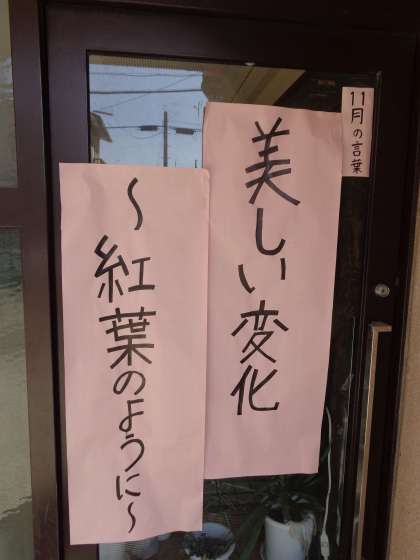 11月の言葉
美しい変化
～紅葉のように～